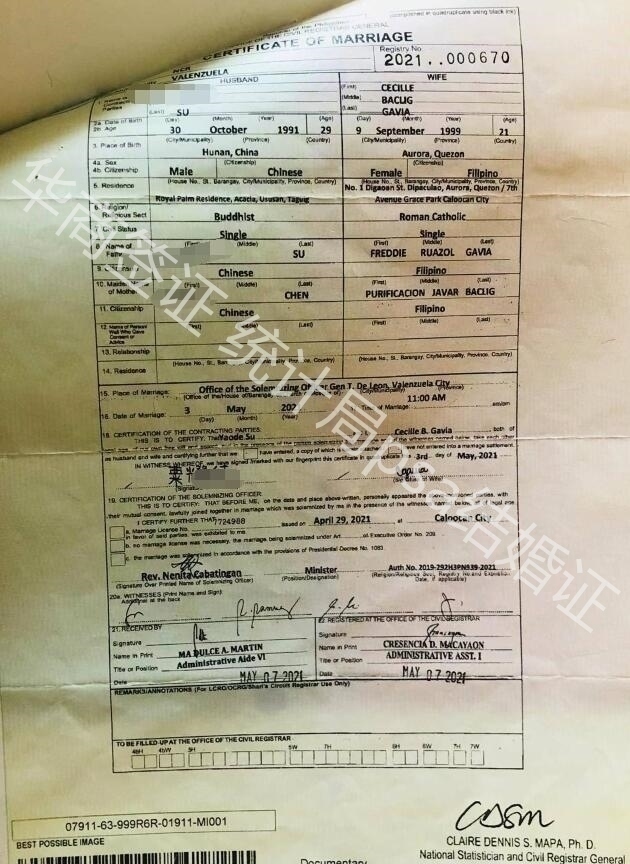 CERTIFICATE OF MARRIAGE
Registry No.
2021..000670
VALENZUELA
HUSBAND
WIFE
(First) CECILLE
(Middle) BACLIG
(Last) SU (Last) GAVIA
2a. Date of Birth (Day) (Month) (Year) (Age) (Day) (Month) (Year) (Age)
2b. Age 30 October 1991 29 9 September 1999 21
3. Place of Birth (City/Municipality) (Province) (Country) (City/Municipality) (Province) (Country)
Hunan, China Aurora, Quezon
4a. Sex (Citizenship) (Citizenship)
4b. Citizenship Male Chinese Female Filipino
5. Residence (House No., St., Barangay, City/Municipality, Province, Country) (House No., St., Barangay, City/Municipality, Province, Country)
No. 1 Digaoan St. Dipaculao, Aurora, Quezon / 7th
Royal Palm Residence, Acacia, Ususan, Taguig Avenue Grace Park Caloocan City
6. Religion/
Religious Sect Buddhist Roman Catholic
7. Civil Status Single Single
8. Name of (First) (Middle) (Last) (First) (Middle) (Last)
SU FREDDIE RUAZOL GAVIA
9. Citizenship Chinese Filipino
10. Maiden Name (First) (Middle) (Last) (First) (Middle) (Last)
of Mother CHEN PURIFICACION JAVAR BACLIG
11. Citizenship Chinese Filipino
12. Name of Person (First) (Middle) (Last) (First) (Middle) (Last)
Who Gave
Consent or
Advice
13. Relationship
14. Residence (House No., St., Barangay, City/Municipality, Province, Country) (House No., St., Barangay, City/Municipality, Province, Country)
15. Place of Marriage: Office of the Solemnizing Officer Gen T. De Leon, Valenzuela City
16. Date of Marriage: 3 May 11:00 AM
(Day) (Month) (Year) Time of Marriage: am/pm
18. CERTIFICATION OF THE CONTRACTING PARTIES:
THIS IS TO CERTIFY: That Yaode Su Cecille B. Gavia both of
as husband and wife and certifying further that we have entered, a copy of which is not entered into a marriage settlement.
IN WITNESS WHEREOF, we have signed/marked with our fingerprint this certificate in quadruplicate 3rd day of May, 2021
19. CERTIFICATION OF THE SOLEMNIZING OFFICER:
THIS IS TO CERTIFY: THAT BEFORE ME, on the date and place above-written, personally appeared the parties, with
their mutual consent, lawfully joined together in marriage which was solemnized by me in the presence of the witnesses
I CERTIFY FURTHER THAT:
a. Marriage License No. 7724988 issued on April 29, 2021 at Caloocan City
in favor of said parties, was exhibited to me.
b. no marriage license was necessary, the marriage being solemnized under Art. of Executive Order No. 209.
c. the marriage was solemnized in accordance with the provisions of Presidential Decree No. 1083.
Rev. Nenita Cabatingan Minister Auth No. 2019-292H3PN939-2021
(Signature Over Printed Name of Solemnizing Officer) (Position/Designation) (Religion/Religious Sect, Registry No. and Expiration Date, if applicable)
20a. WITNESSES (Print Name and Sign):
Additional at the back
21. RECEIVED BY 22. REGISTERED AT THE OFFICE OF THE CIVIL REGISTRAR
Signature Signature
Name in Print MA DULCE A. MARTIN Name in Print CRESENCIA D. MACAYAON
Title or Position Administrative Aide VI Title or Position ADMINISTRATIVE ASST. I
Date MAY 07 2021 Date MAY 07 2021
REMARKS/ANNOTATIONS (For LCRO/OCRG/Shari'a Circuit Registrar Use Only)
TO BE FILLED-UP AT THE OFFICE OF THE CIVIL REGISTRAR
4bH 4bW 5H 5W 6H 6W 7H 7W
07911-63-999R6R-01911-MI001
BEST POSSIBLE IMAGE
CLAIRE DENNIS S. MAPA, Ph. D.
National Statistician and Civil Registrar General
Documentary
华商签证 统计局psa结婚证